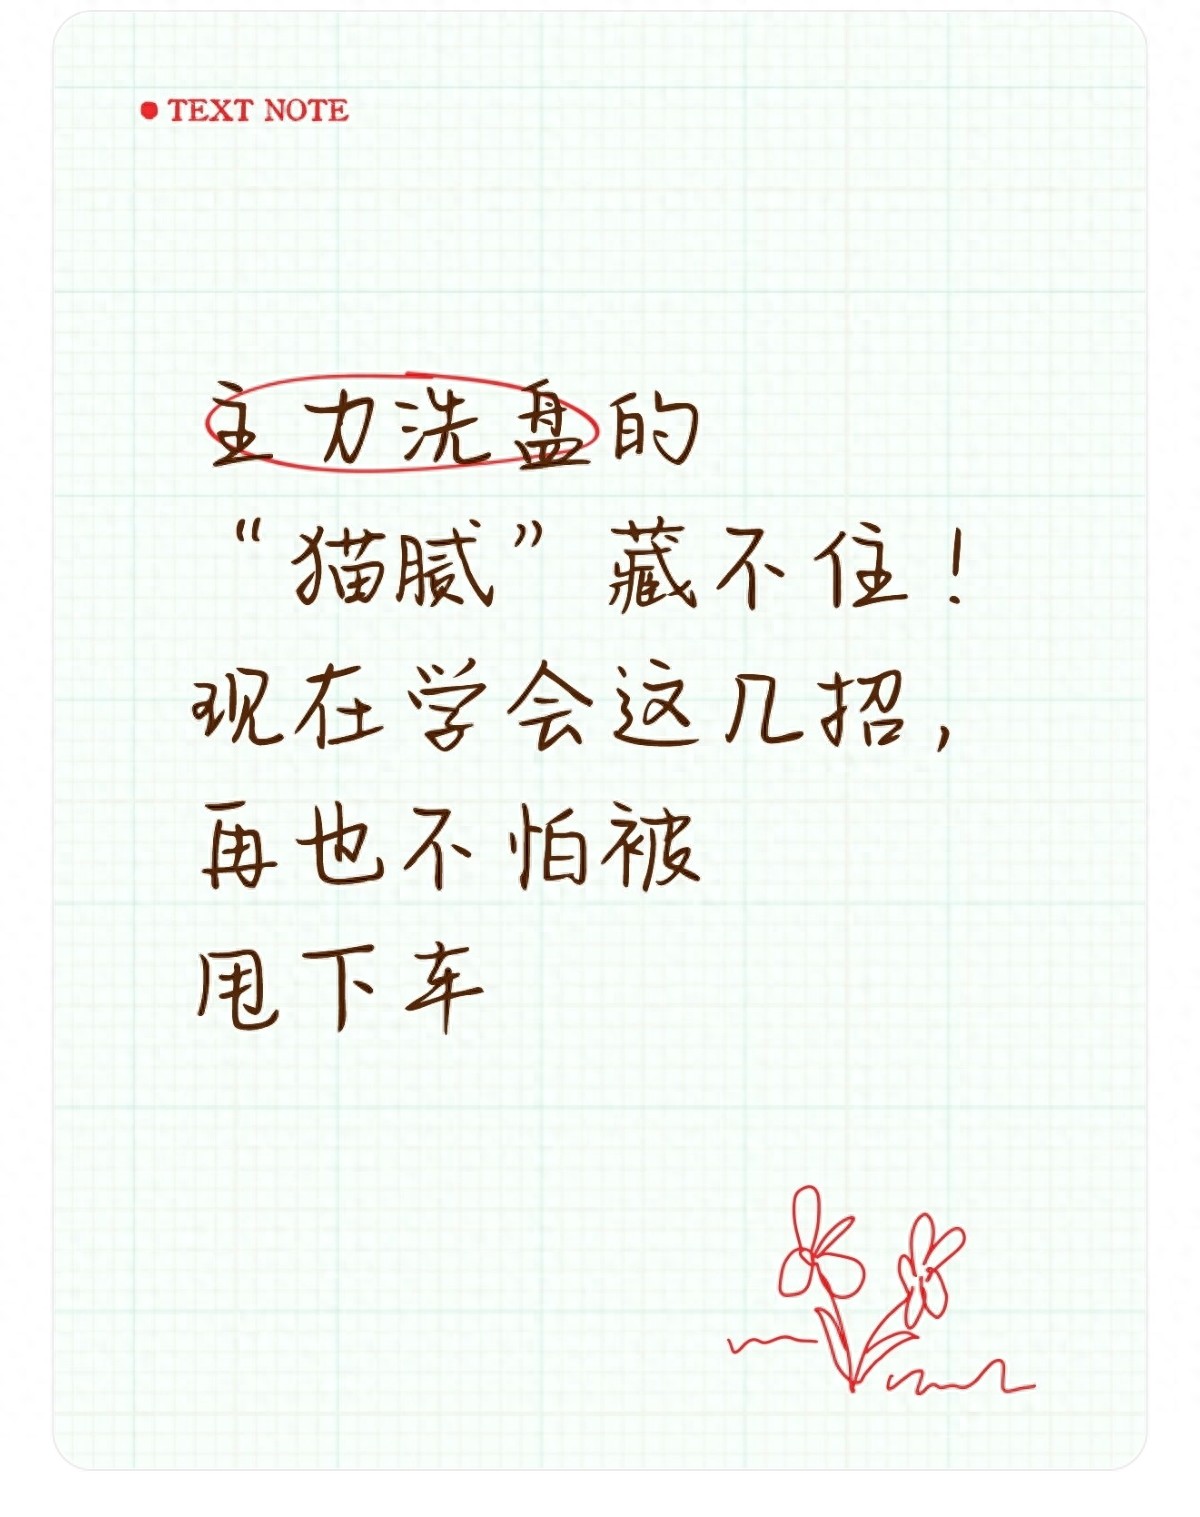 TEXT NOTE
主力洗盘的
“猫腻”藏不住！
现在学会这几招，
再也不怕被
甩下车